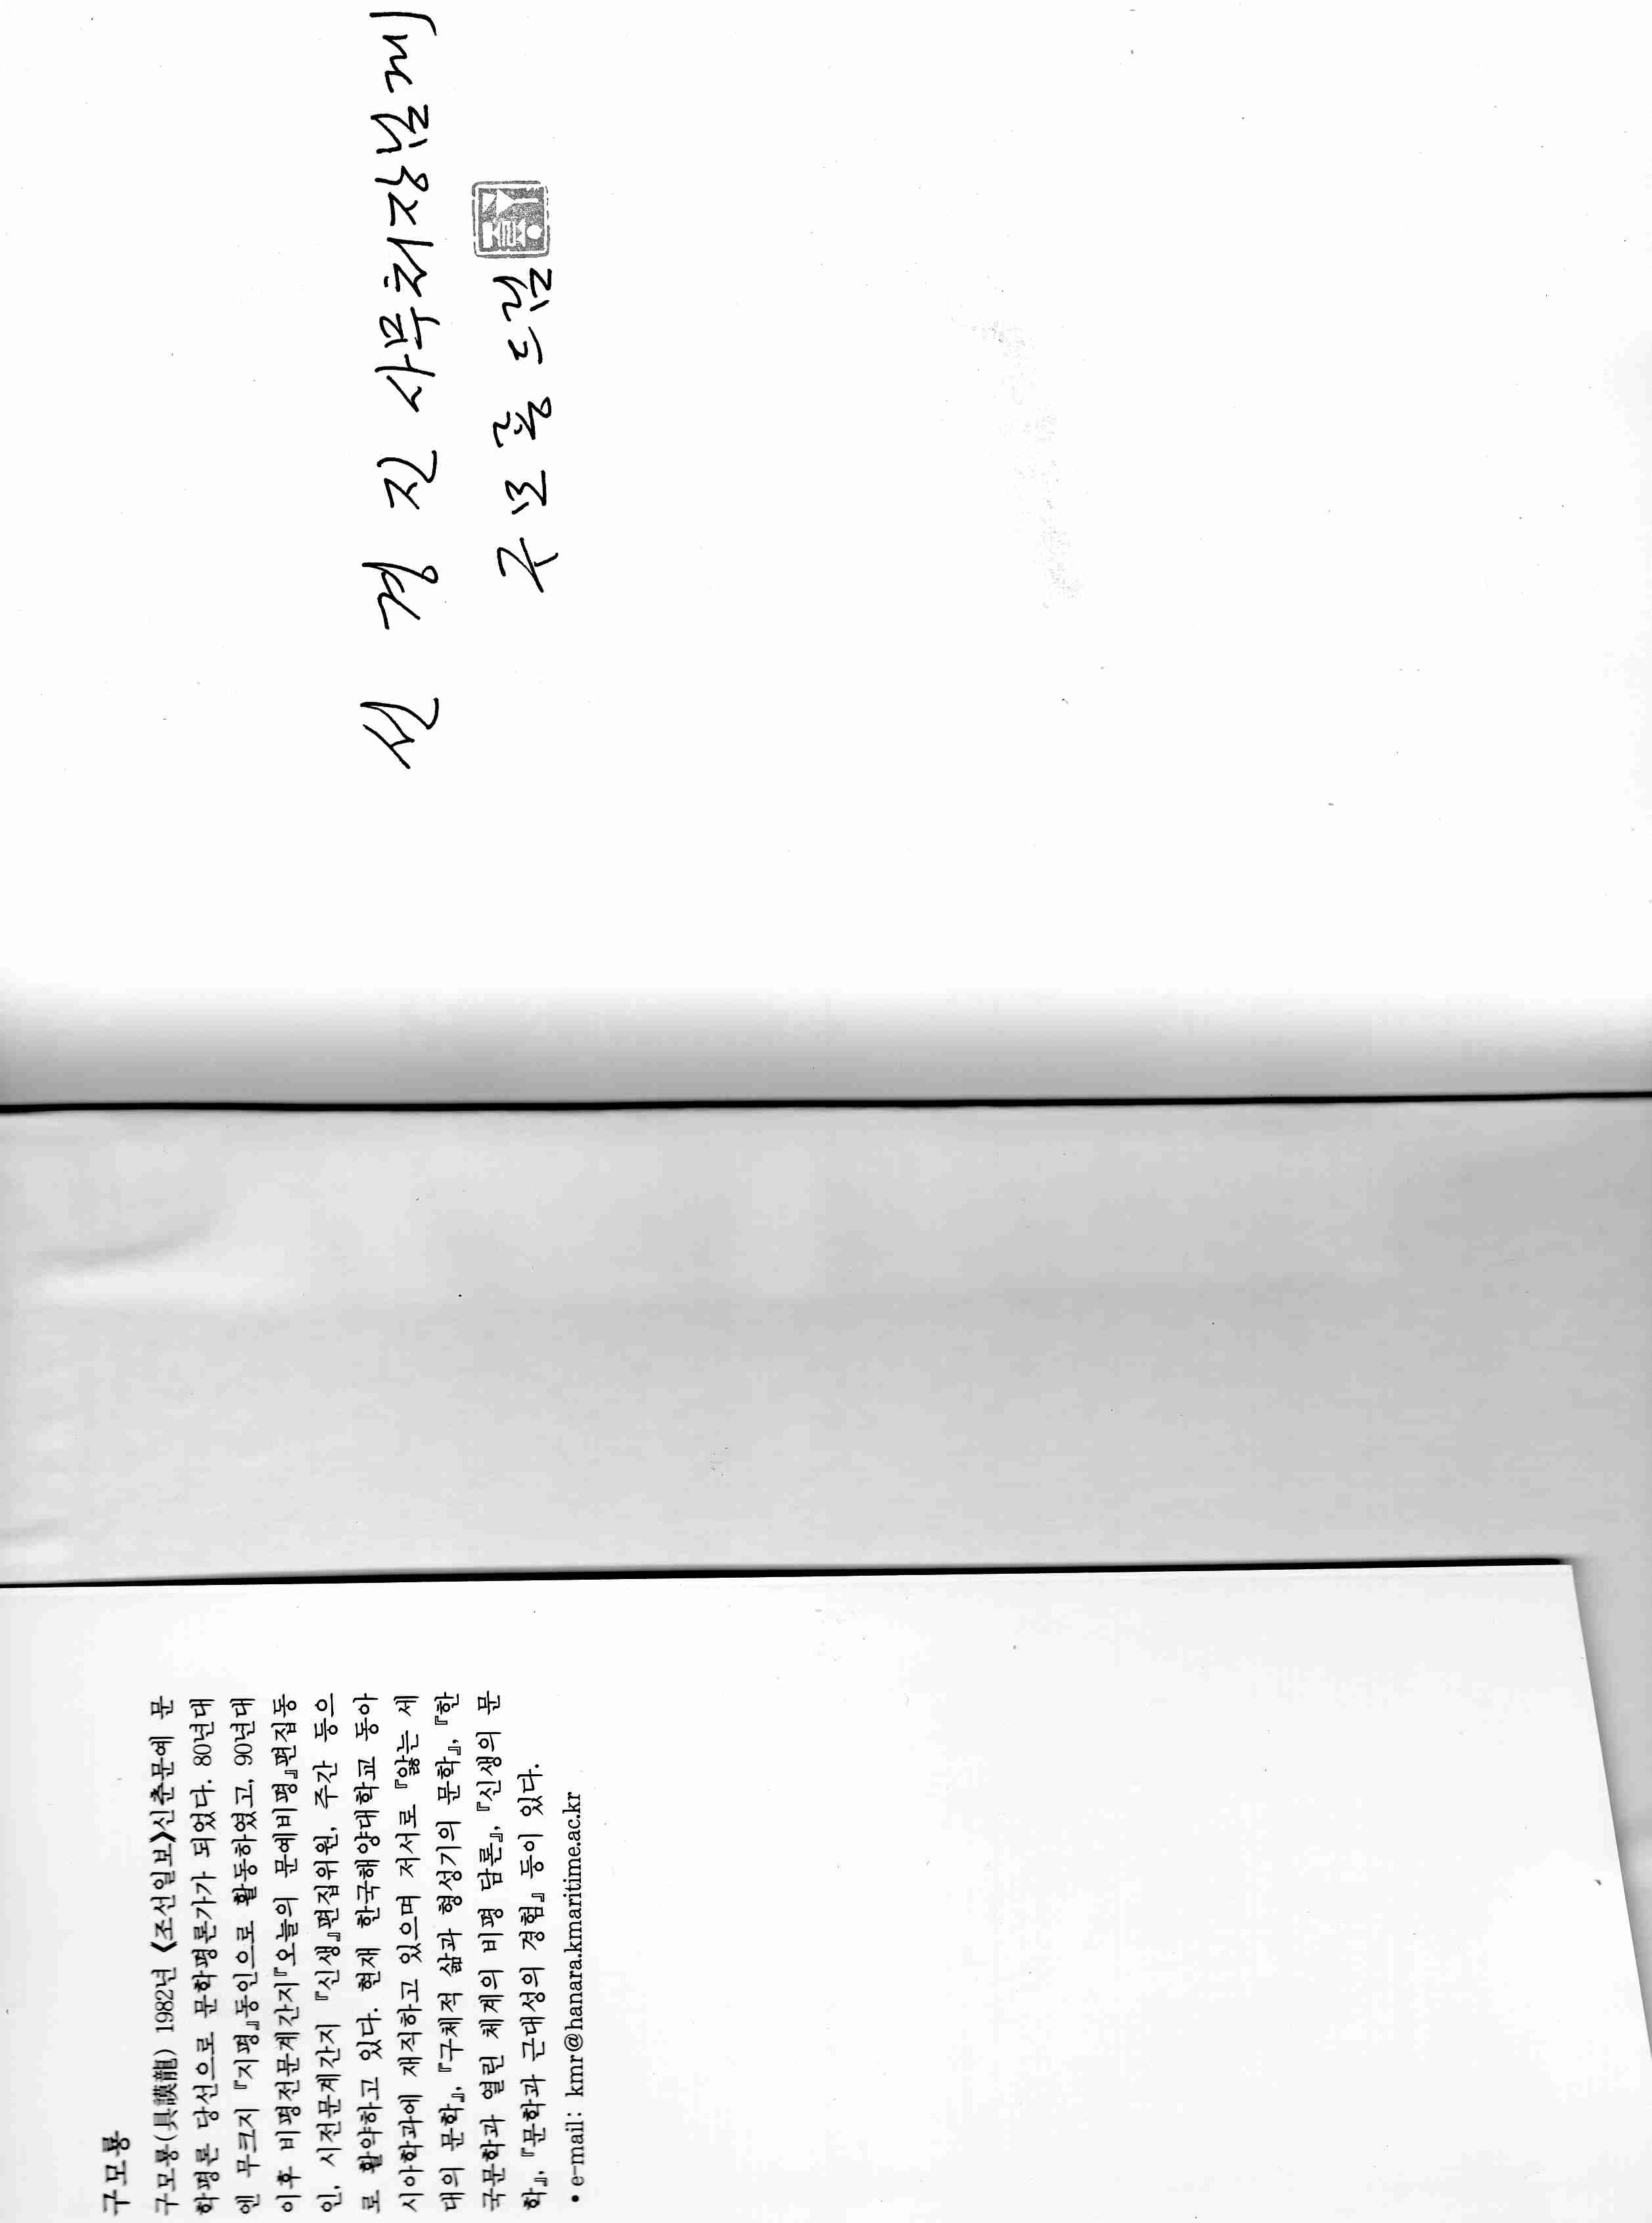 구모룡
구모룡(具謨龍) 1982년 《조선일보》신춘문예 문
학평론 당선으로 문학평론가가 되었다. 80년대
엔 무크지 『지평』동인으로 활동하였고, 90년대
이후 비평전문계간지『오늘의 문예비평』편집동
인, 시전문계간지 『신생』편집위원, 주간 등으
로 활약하고 있다. 현재 한국해양대학교 동아
시아학과에 재직하고 있으며 저서로 『앓는 세
대의 문학』, 『구체적 삶과 형성기의 문학』, 『한
국문학과 열린 체계의 비평 담론』, 『신생의 문
학』, 『문학과 근대성의 경험』 등이 있다.
• e-mail: kmr@hanara.kmaritime.ac.kr
선 경 진 사무처장님께
구 모 룡 드림